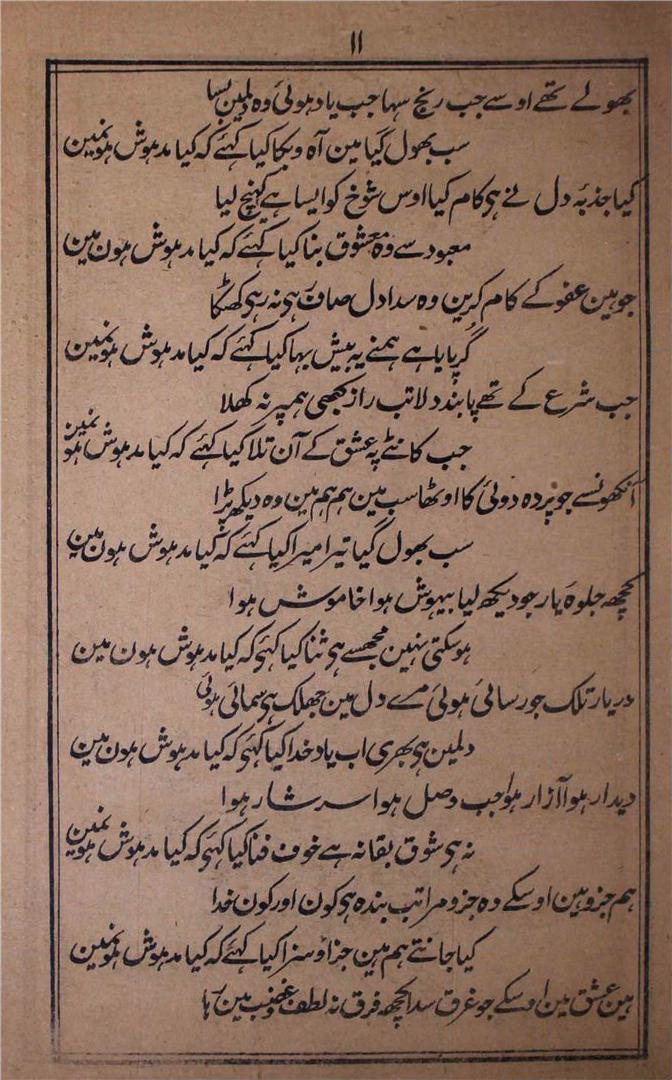 ۱۱
بھولے تھے اوسے جب رنج سہا جب یاد ہوئی وہ دلمین بسا
سب بھول گیا مین آہ و بکا کیا کہئے کہ کیا مدہوش ہونمین
کیا جذبۂ دل نے ہی کام کیا اوس شوخ کو ایسا ہے کھینچ لیا
معبود سے وہ معشوق بنا کیا کہئے کہ کیا مدہوش ہون مین
جو ہین عفو کے کام کرین وہ سدا دل صاف رہی نہ رہی کھٹکا
گُر پایا ہے ہمنے یہ بیش بہا کیا کہئے کہ کیا مدہوش ہونمین
جب شرع کے تھے پابند دلا تب راز کبھی ہمپر نہ کھلا
جب کانٹے پہ عشق کے آن تلا کیا کہئے کہ کیا مدہوش ہونمین
آنکھونسے جو پردہ دوئی کا اوٹھا سب مین ہم ہم مین وہ دیکھ پڑا
سب بھول گیا تیرا میرا کیا کہئے کہ کیا مدہوش ہون مین
کچھہ جلوۂ یار جو دیکھ لیا بیہوش ہوا خاموش ہوا
ہوسکتی نہین مجھسے ہی ثنا کیا کہئی کہ کیا مدہوش ہون مین
دریار تلک جو رسائی ہوئی مرے دل مین جھلک ہی سمائی ہوئی
دلمین ہی بھری اب یاد خدا کیا کہئی کہ کیا مدہوش ہون مین
دیدار ہوا آزار ہوا جب وصل ہوا سرشار ہوا
نہ ہی شوق بقا نہ ہے خوف فنا کیا کہئی کہ کیا مدہوش ہونمین
ہم جزو ہین اوسکے وہ جزو مراتب بندہ ہی کون اور کون خدا
کیا جانتے ہم ہین جزا و سزا کیا کہئے کہ کیا مدہوش ہونمین
ہین عشق مین اوسکے جو غرق سدا کچھہ فرق نہ لطف و غضب مین رہا